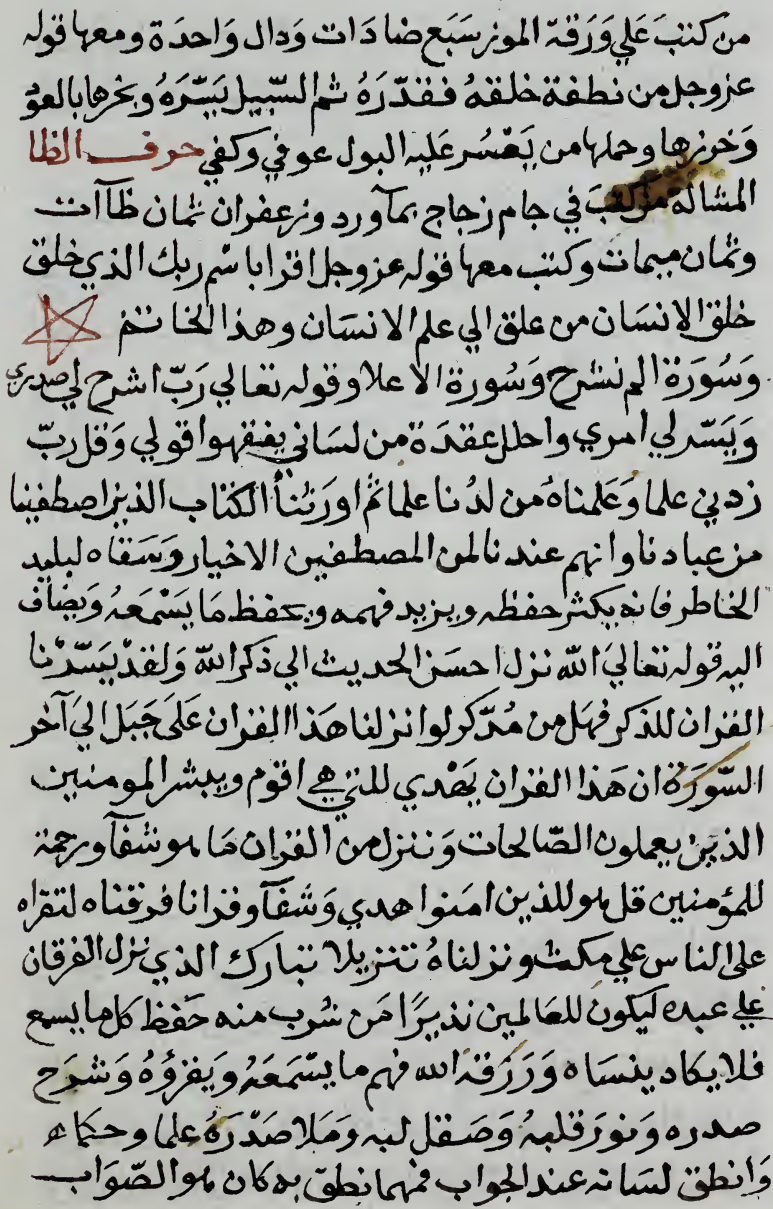 من كتب علي وَرَقة الموز سَبَع ضادَات وَدال وَاحدَة ومعها قوله
عز وجل من نطفة خلقهُ فقدّرَهُ ثم السّبيل يَسّرَهُ وبخرها بالعوْ
وَخرزها وحملها من يَعْسُر عَليه البول عوفي وكفي حرف الظا
المشالة من كتبَ في جام زجاج بمآورد وزعفران ثمان ظاآت
وثمان ميمات وكتب معها قوله عز وجل اقرا باسْم ربك الذي خلق
خلق الانسَان من علق الي علم الانسَان وهذا الخاتم
وَسُورَة الم نشرح وَسُورة الاعلا وقوله تعالي رَبّ اشرح لي صدري
وَيَسّر لي امري واحلل عقدَة من لسَاني يفقهوا قولي وَقل ربّ
زدني علما وَعَلمناهُ من لدُنا علما ثم اورَثنأ الكتاب الذين اصطفينا
من عبادنا وانهم عندنا لمن المصطفين الاخيار وَسَقاه لبليد
الخاطر فانه يكثر حفظه ويزيد فهمه ويحفظ مَا يَسْمَعَهُ وَيضاف
اليه قوله تعاليَ الله نزل احسَن الحديث الي ذكر الله وَلقدْ يَسّرْنا
القران للذكر فهَل من مُدّكر لو انزلنا هَذا القران عَلَى جَبَل اليَ آخر
السّورَة ان هَذا القران يَهْدي للتي هي اقوم ويبشر المومنين
الذين يعملون الصّالحات وَننزل من القران مَا هو شفآ ورحمة
للمؤمنين قل هو للذين امَنوا هدي وَشفآ وقرانا فرقناه لتقراه
على الناس علي مكث ونزلناهُ تنزيلا تبارك الذي نزل الفرقان
علي عبده ليكون للعَالمين نذيرًا مَن شرب منه حَفظ كل ما يسمع
فلا يكاد ينسَاه وَرَزَقهُ الله فهم ما يسْمَعَهُ وَيقرؤُهُ وَشرَح
صدره وَنورَ قلبهُ وَصَقل لبه وَمَلا صَدْرَهُ علما وحكما
وَانطق لسَانه عند الجواب فمهما نطق به كان هو الصّوَاب